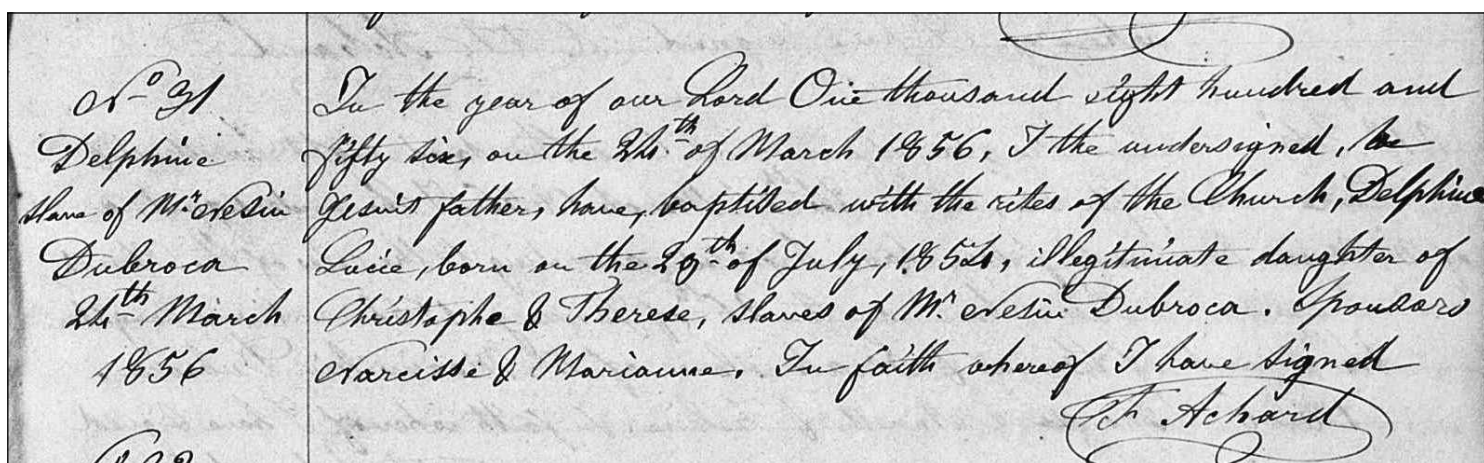 No 31
Delphine
slave of Mr Nesin
Dubroca
24th March
1856
In the year of our Lord One thousand eight hundred and
fifty six, on the 24th of March 1856, I the undersigned,
Jesuit father, have, baptised with the rites of the Church, Delphine
Lucie, born on the 29th of July, 1854, illegitimate daughter of
Christophe & Therese, slaves of Mr Nesin Dubroca. Sponsors
Narcisse & Marianne. In faith whereof I have signed
F Achard